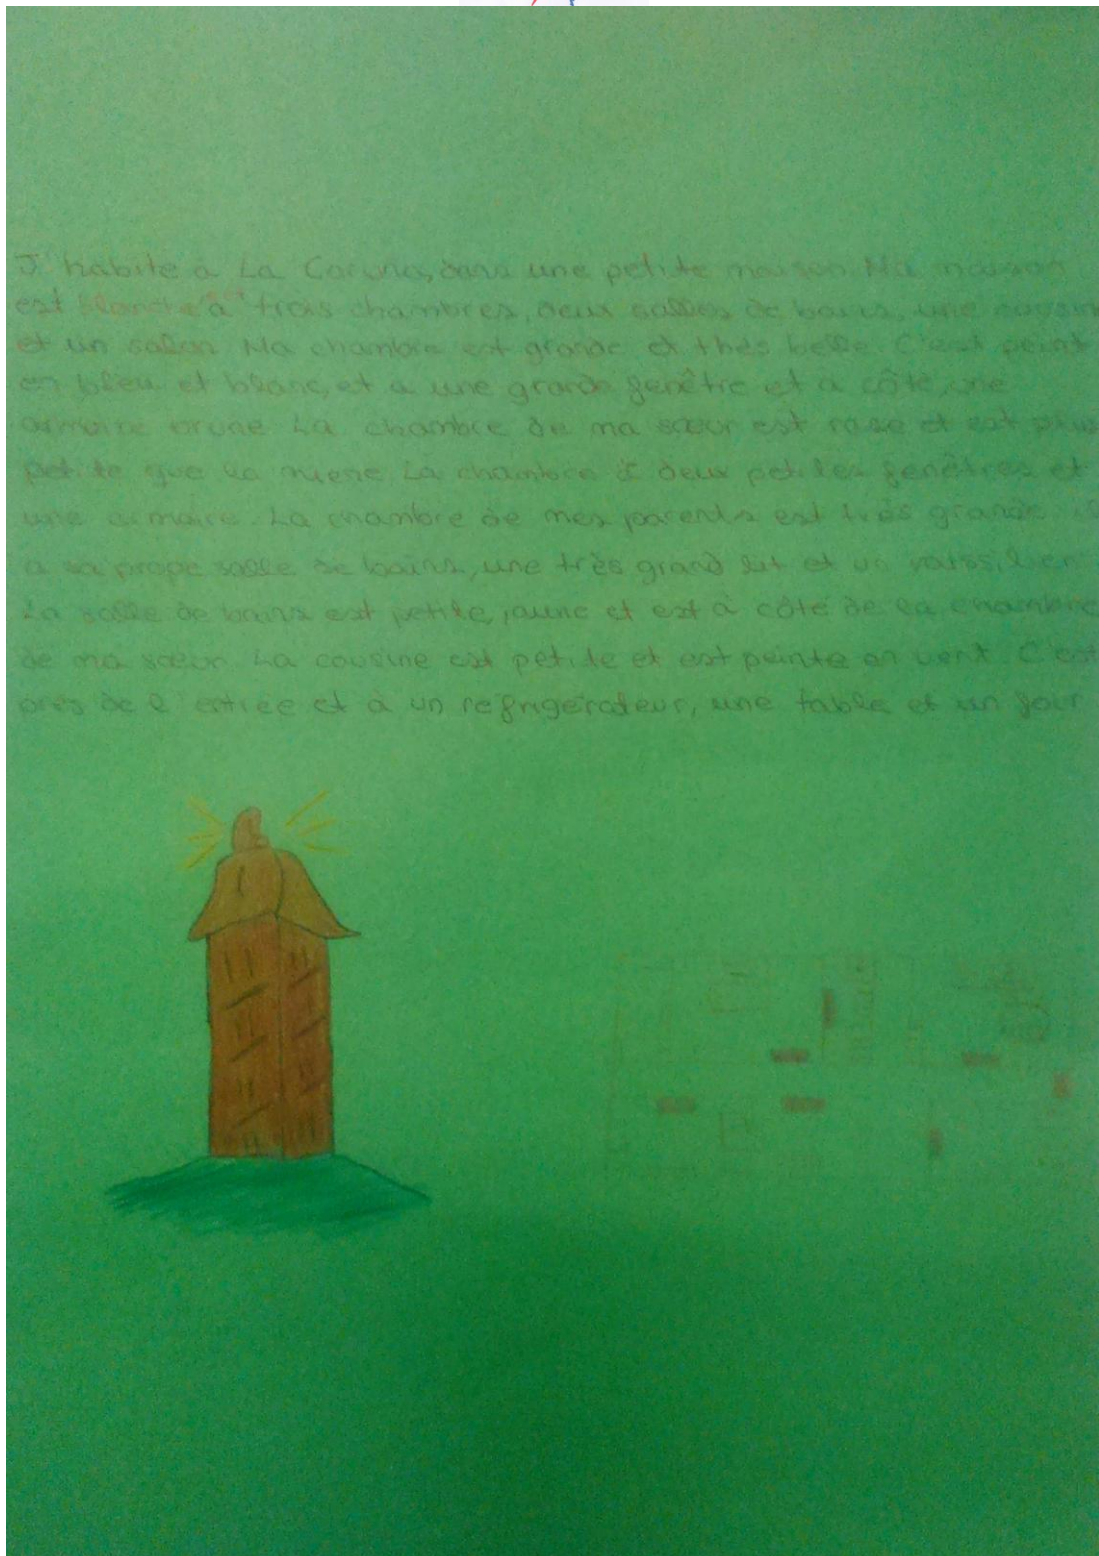 J'habite à La Coruña, dans une petite maison. Ma maison
est blanche a trois chambres, deux salles de bains, une
et un salon. Ma chambre est grande et thès belle. C'est peint
en bleu et blanc, et a une grande fenêtre et à côté, une
armoire brune. La chambre de ma sœur est rose et est plus
petite que la miene. La chambre à deux petites fenêtres et
une armoire. La chambre de mes parents est très grande.
a sa prope salle de bains, une très grand lit et un
La salle de bains est petite, jaune et est à côté de la chambre
de ma sœur. La cousine est petite et est peinte en vert. C'est
près de l'entrée et à un refrigerateur, une table et un four